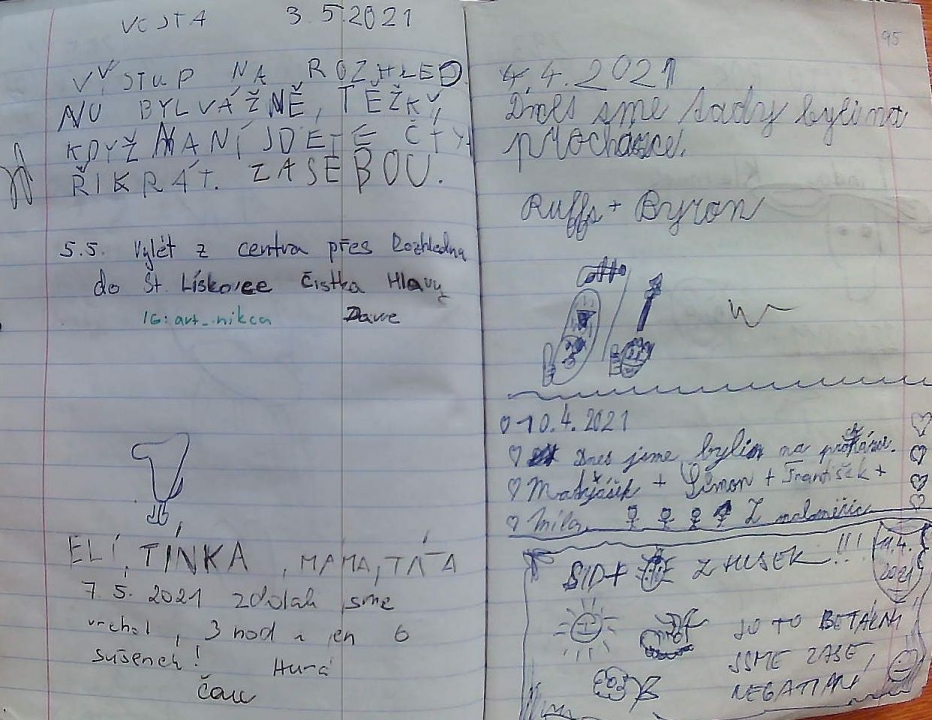 VOJTA 3.5.2021
VÝSTUP NA ROZHLED
NU BYL VÁŽNĚ, TĚŽKÝ,
KDYŽ NANÍ JDETE ČTY
ŘIKRÁT. ZASEBOU.
5.5. Výlet z centra přes Rozhledna
do St. Lískovce Čistka Hlavy
IG: art_nikca Dave
ELÍ, TÍNKA, MAMA, TÁTA
7.5. 2021 zdolali sme
vrchol, 3 hod a jen 6
sušenek! Hurá
Čau
95
4.4.2021
Dnes sme tady byli na
procházce.
Ruffs + Byron
10.4.2021
Dnes jsme byli na
Matyášek + Šimon + František +
Míla
SID + Z HUSEK !!! 11.4.
2021
JO TO BETÁLNÍ
JSME ZASE
NEGATIVNÍ